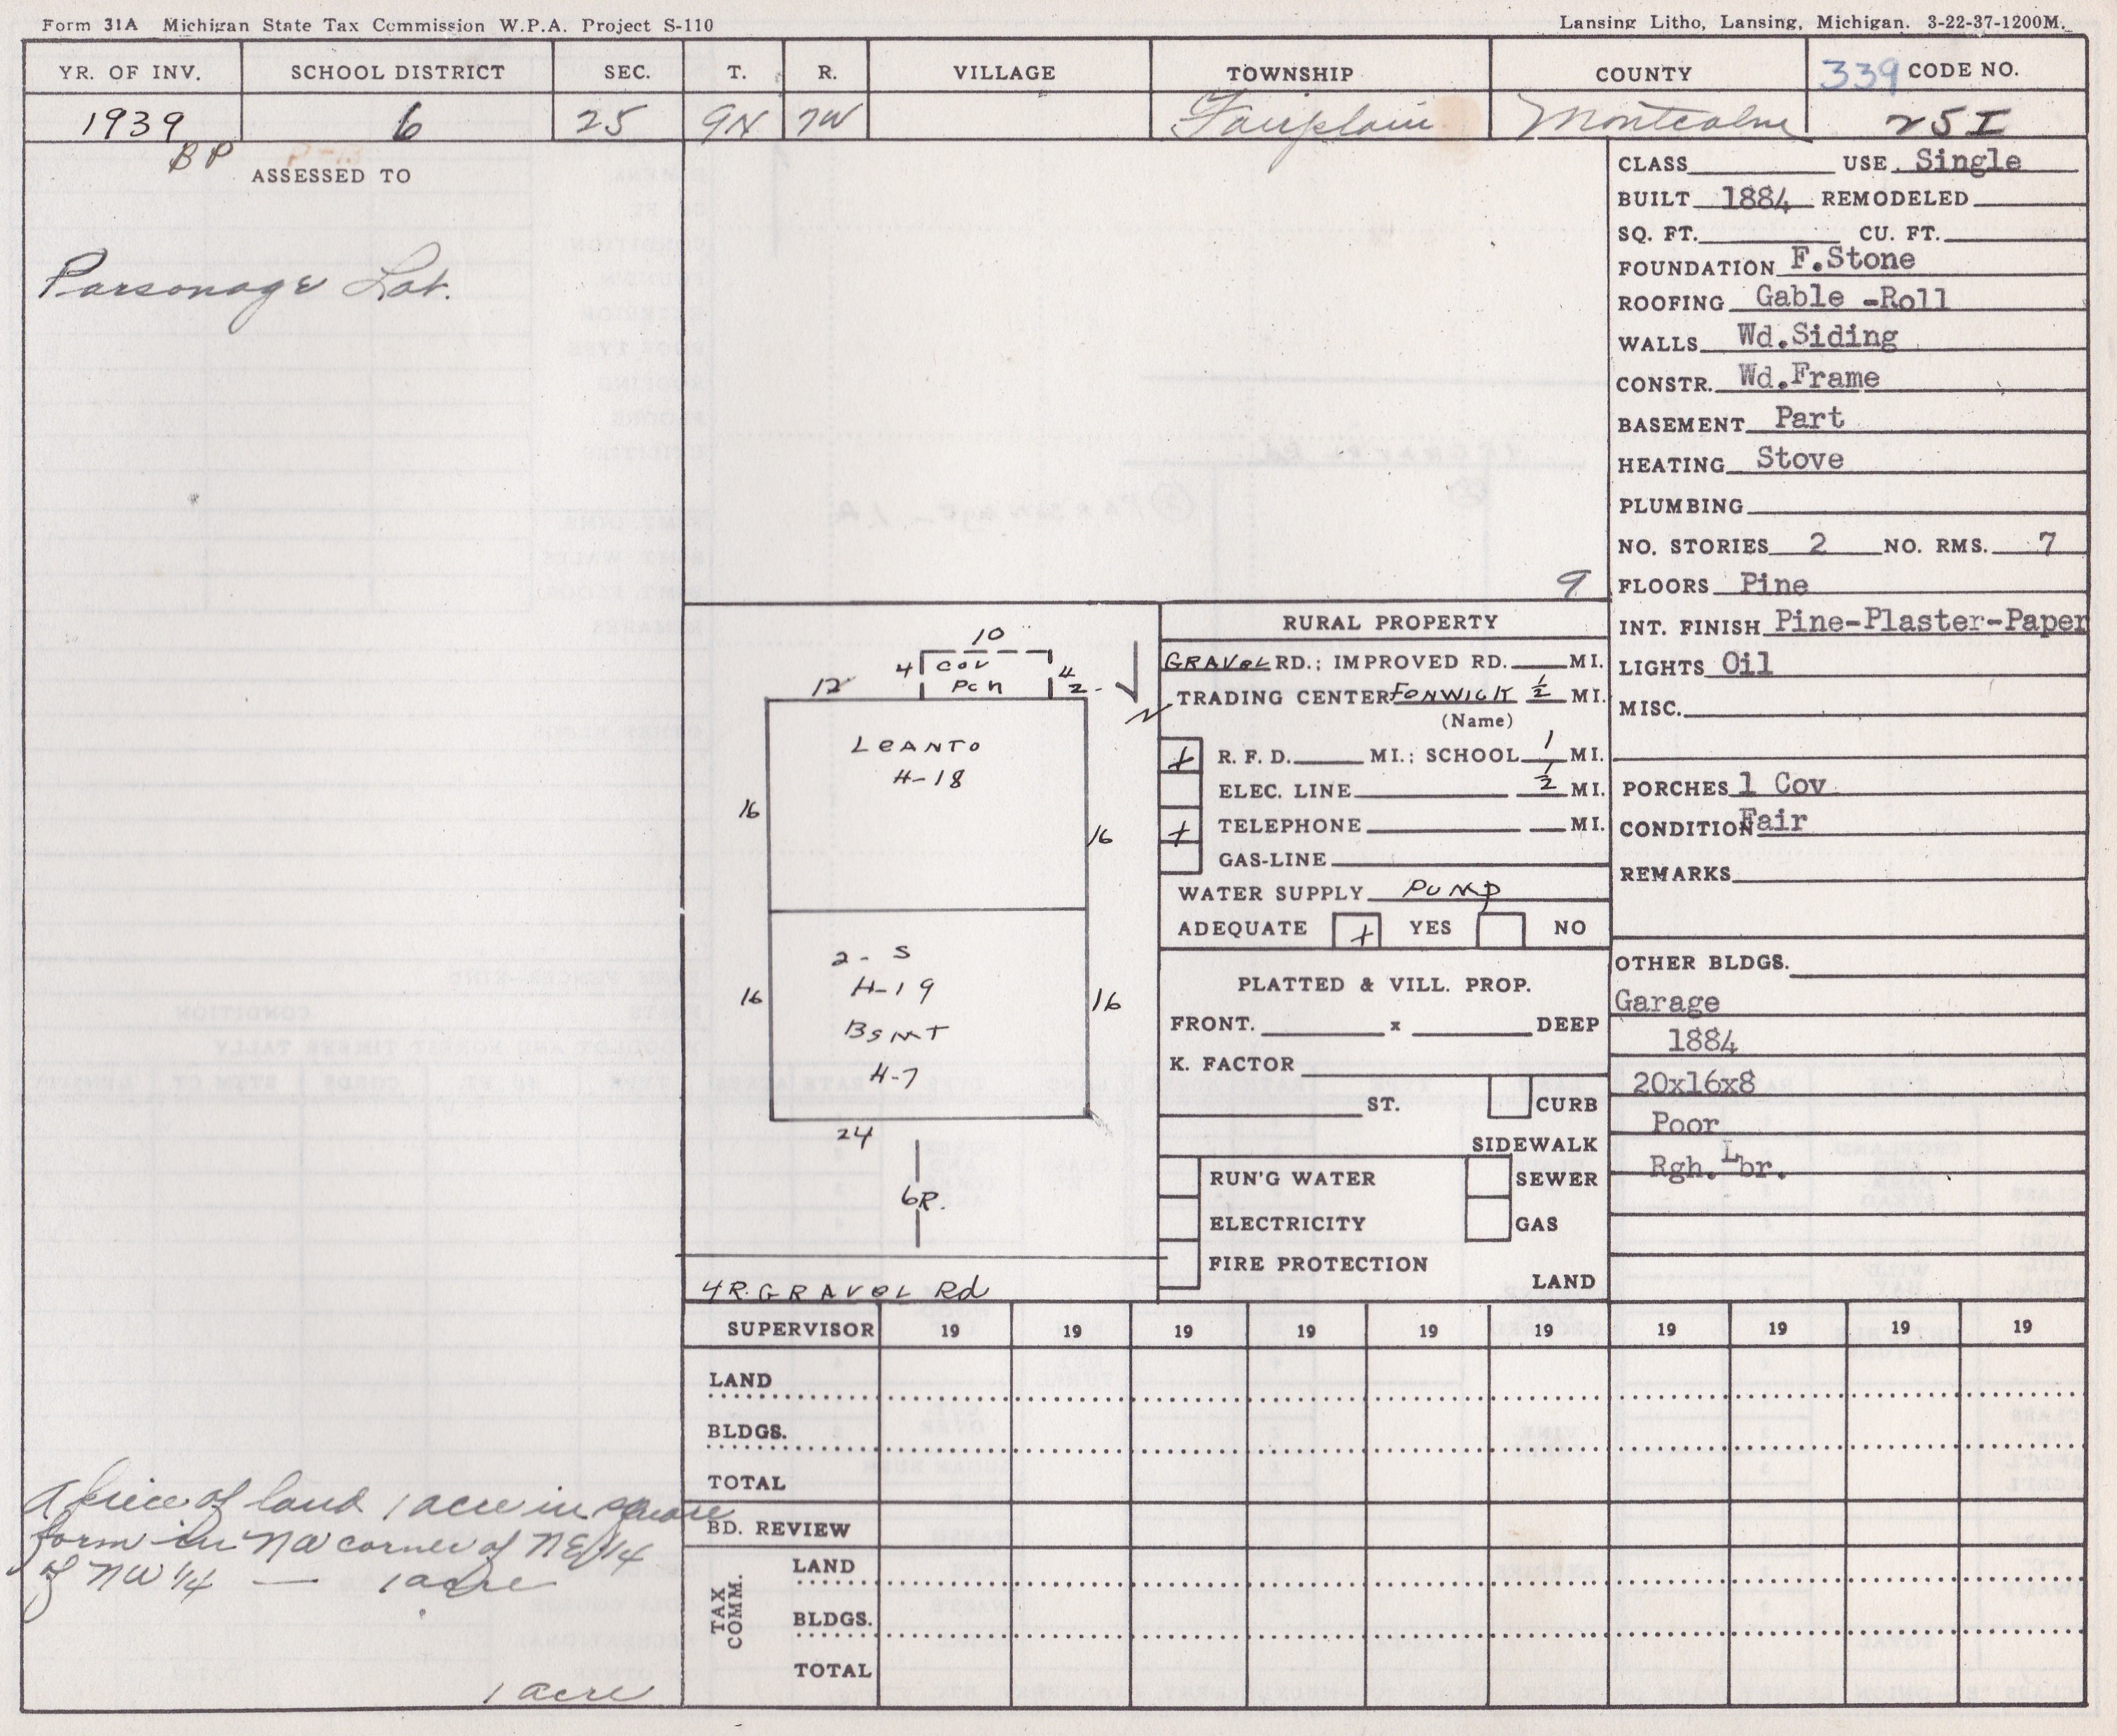 Form 31A Michigan State Tax Commission W.P.A. Project S-110
Lansing Litho, Lansing, Michigan. 3-22-37-1200M.
YR. OF INV. SCHOOL DISTRICT SEC. T. R. VILLAGE TOWNSHIP COUNTY 339 CODE NO.
1939 6 25 9N 7W Fairplain Montcalm 25 I
BP P-13
ASSESSED TO
Parsonage Lot.
A piece of land 1 acre in square
form in NW corner of NE 1/4
of NW 1/4 — 1 acre
1 acre
9
10
4 COV 4
12 PcH 2-
LeANTO
H-18
16 16
2- S
H-19
16 16
BSMT
H-7
24
6R.
4R. GRAVEL Rd
RURAL PROPERTY
GRAVEL RD.; IMPROVED RD. MI.
TRADING CENTER FENWICK 1/2 MI.
(Name)
+ R. F. D. MI.; SCHOOL 1 MI.
ELEC. LINE 1/2 MI.
+ TELEPHONE MI.
GAS-LINE
WATER SUPPLY PUMP
ADEQUATE + YES NO
PLATTED & VILL. PROP.
FRONT. x DEEP
K. FACTOR
ST. CURB
SIDEWALK
RUN'G WATER SEWER
ELECTRICITY GAS
FIRE PROTECTION
LAND
CLASS USE Single
BUILT 1884 REMODELED
SQ. FT. CU. FT.
FOUNDATION F.Stone
ROOFING Gable -Roll
WALLS Wd.Siding
CONSTR. Wd.Frame
BASEMENT Part
HEATING Stove
PLUMBING
NO. STORIES 2 NO. RMS. 7
FLOORS Pine
INT. FINISH Pine-Plaster-Paper
LIGHTS Oil
MISC.
PORCHES 1 Cov
CONDITION Fair
REMARKS
OTHER BLDGS.
Garage
1884
20x16x8
Poor
Rgh. Lbr.
SUPERVISOR 19 19 19 19 19 19 19 19 19 19
LAND
BLDGS.
TOTAL
BD. REVIEW
TAX COMM.
LAND
BLDGS.
TOTAL